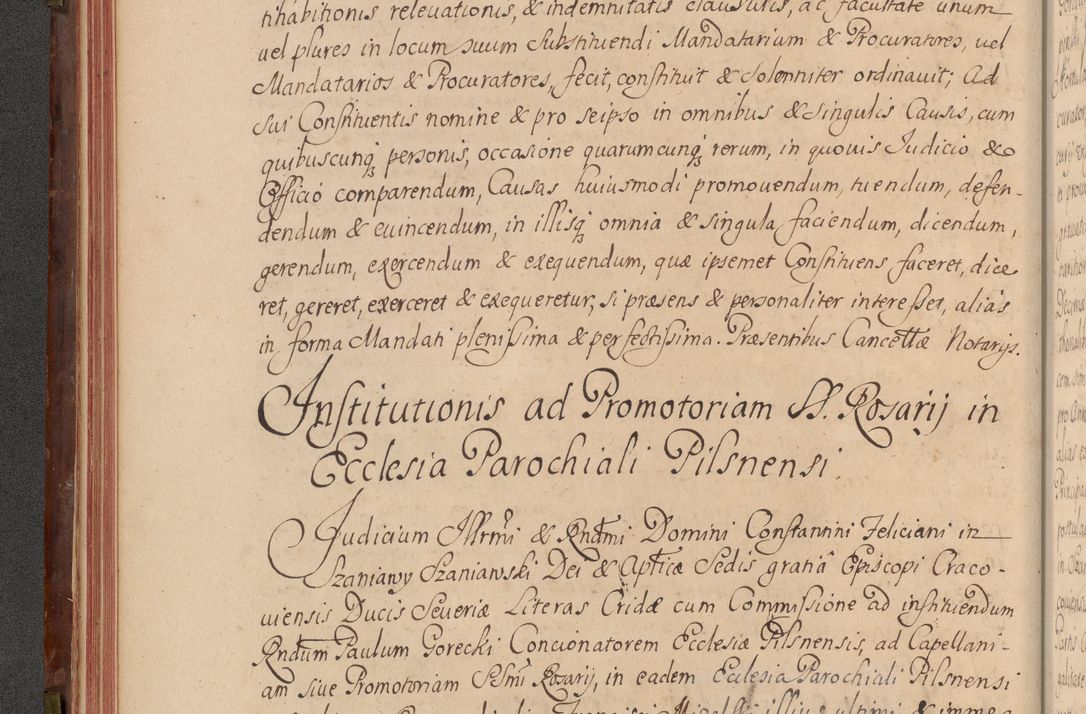 tihabitionis releuationis, & indemnitatis clausulis, ac facultate unum
uel plures in locum suum substituendi Mandatarium & Procuratores, uel
Mandatarios & Procuratores, fecit, constituit & solemniter ordinauit; Ad
sui Constituentis nomine & pro seipso in omnibus & singulis Causis, cum
quibuscunq; personis, occasione quarumcunq; rerum, in quouis Judicio &
Officio comparendum, Causas huiusmodi promouendum, tuendum, defen-
dendum & euincendum, in illisq; omnia & singula faciendum, dicendum,
gerendum, exercendum & exequendum, quæ ipsemet Constituens faceret, dice
ret, gereret, exerceret & exequeretur, si præsens & personaliter interesset, alias
in forma Mandati plenissima & perfectissima. Præsentibus Cancellæ Notarijs.
Institutionis ad Promotoriam SS. Rosarij in
Ecclesia Parochiali Pilsnensi.
Judicium Illrmi & Rndmi Domini Constantini Feliciani in
Szaniawy Szaniawski Dei & Apticæ Sedis gratiâ Episcopi Craco-
uiensis Ducis Seueriæ Literas Cridæ cum Commissione ad instituendum
Rndum Paulum Gorecki Concionatorem Ecclesiæ Pilsnensis, ad Capellani-
am siue Promotoriam SSmi Rosarij, in eadem Ecclesia Parochiali Pilsnensi